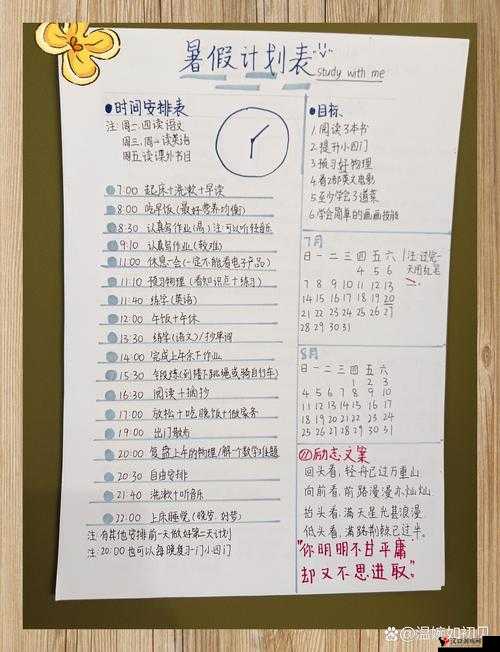 暑假计划表
study with me
●时间安排表
注：周一、四读语文
周三、周二读英语
周五读课外书目
7:00 起床+洗漱+早读
8:00 吃早饭(最好营养均衡)
8:30 认真写作业(高)注:可以听轻音乐
9:10 认真写作业(较难)
11:00 休息一会(一定不能看电子产品)
11:10 预习物理(看知识点+练习)
11:40 练字(英语)
12:00 午饭+午休
13:30 练字(语文)/抄单词
14:00 完成上午余下作业
15:30 锻炼(到楼下跳绳或骑自行车)
16:30 阅读+摘抄
17:00 放松+吃晚饭+做家务
19:00 出门散布
20:00 复盘上午的物理/解一个数学难题
20:30 自由安排
21:40 洗漱+听音乐
22:00 上床睡觉(晚安，好梦)
注:有其他安排前一天做好第二天计划
注:20:00也可以每晚复习一门小四门
●目标、
1.阅读3本书
2.提升小四门
3.预习好物理
4.看2部英文电影
5.至少学会3道菜
6.学会简单的画画技能
7月
日一二三四五六
4 5 6
7 8 9 10 11 12 13
14 15 16 17 18 19 20
21 22 23 24 25 26 27
28 29 30 31
注:过完一
天用红笔
8月
日一二三四五六
1 2 3
4 5 6 7 8 9 10
11 12 13 14 15 16 17
18 19 20 21 22 23 24
25 26 27 28 29 30 31
励志文案
回头看,轻舟已过万重山
向前看,前路漫漫亦灿灿
抬头看,满天星光甚浪漫
低头看,满路荆棘已过半。
"你明明不甘平庸
却又不思进取"
@温婉如初见